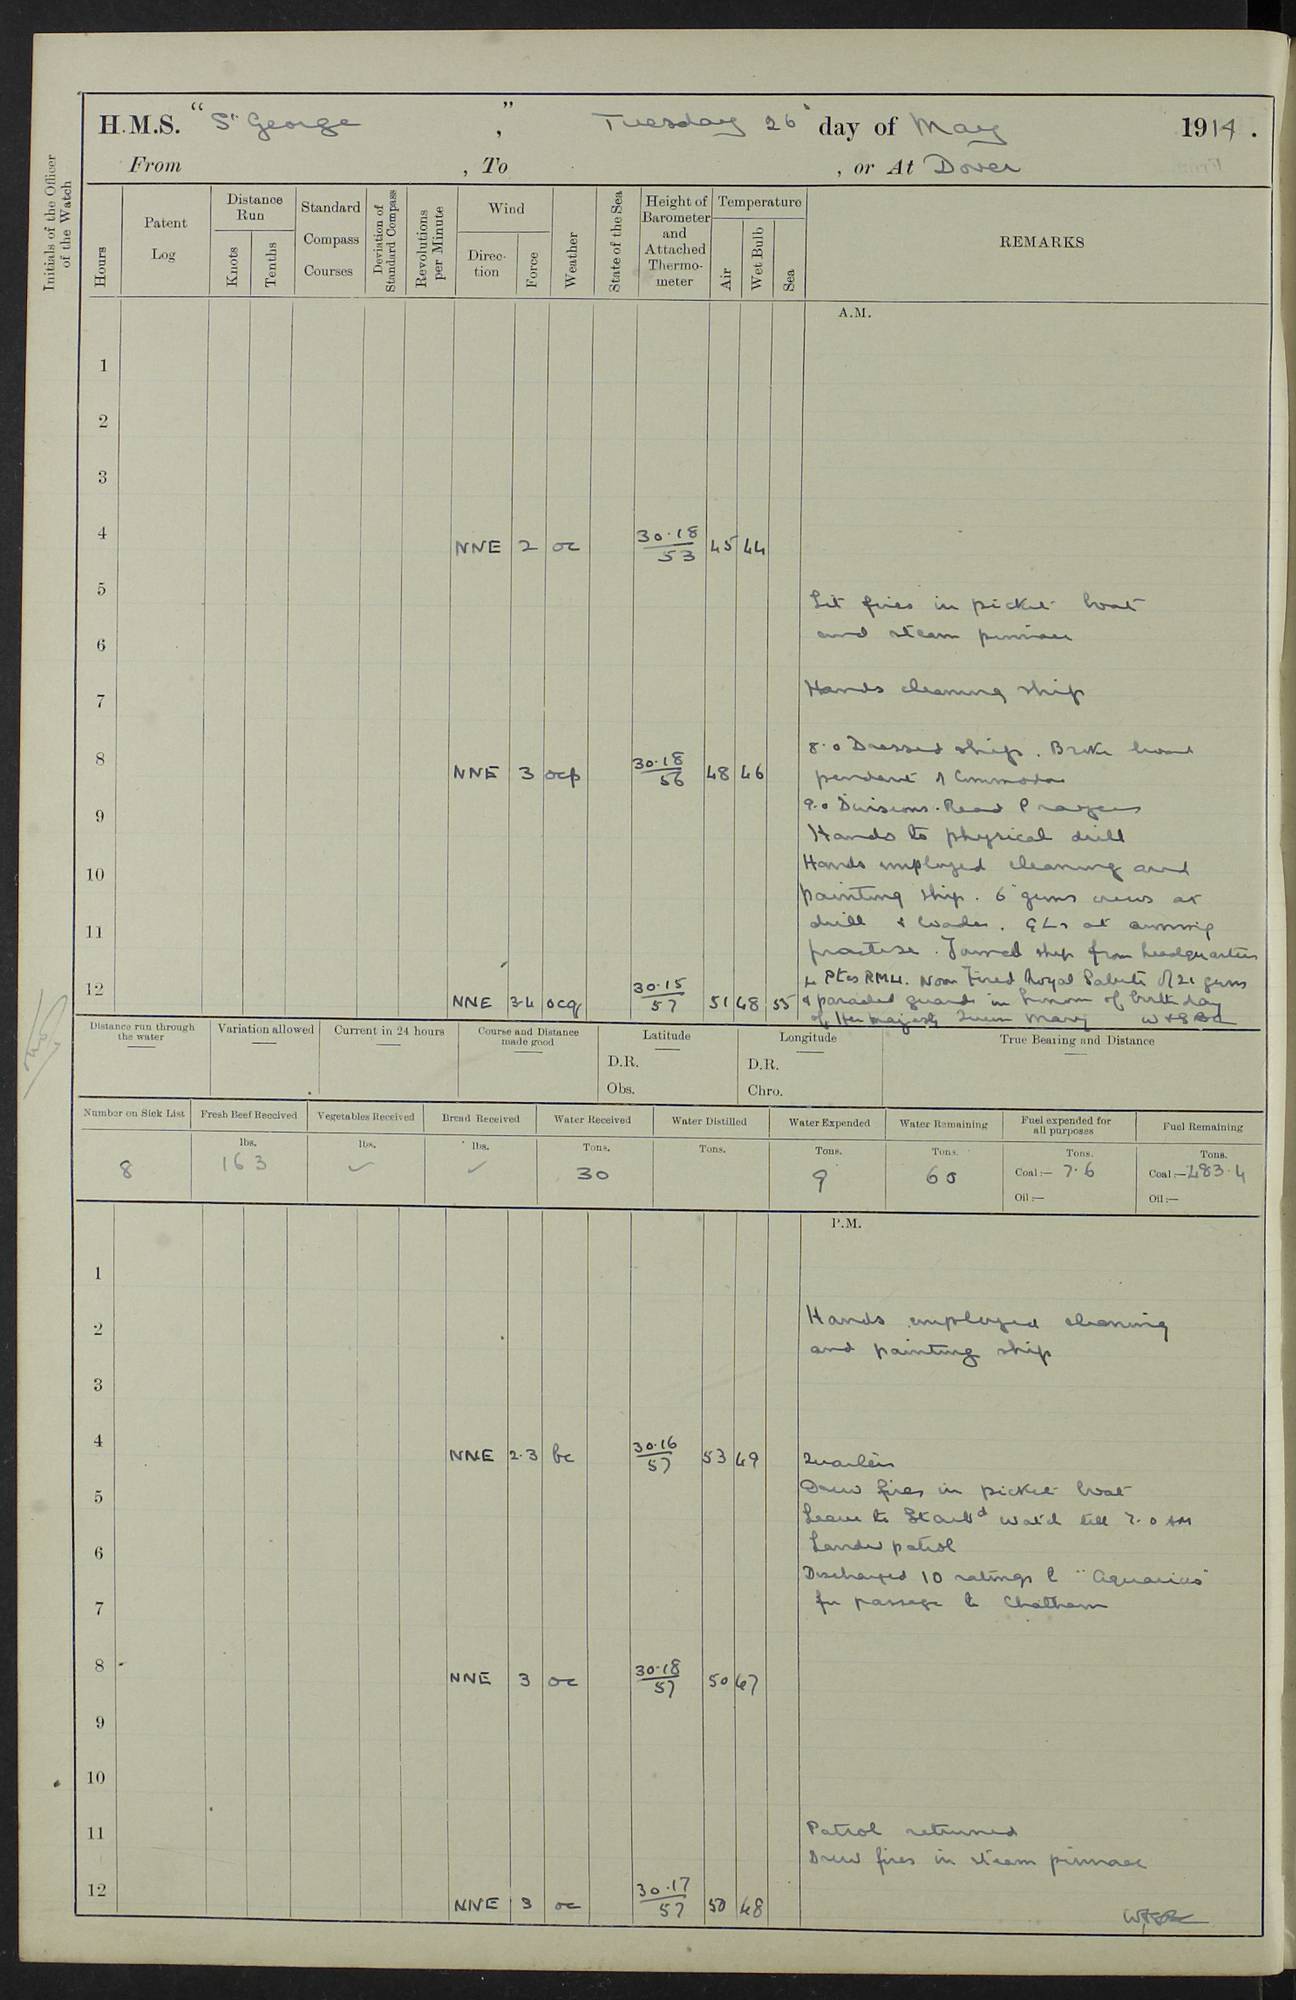 H.M.S. "St George", Tuesday 26 day of May 1914.
From , To , or At Dover
Initials of the Officer of the Watch
Hours
Patent Log
Distance Run
Knots
Tenths
Standard Compass Courses
Deviation of Standard Compass
Revolutions per Minute
Wind
Direction
Force
Weather
State of the Sea
Height of Barometer and Attached Thermometer
Temperature
Air
Wet Bulb
Sea
REMARKS
A.M.
1
2
3
4 NNE 2 oc 30.18/53 45 44
5 Lit fires in picket boat
and steam pinnace
6
7 Hands cleaning ship
8.0 Dressed ship. Broke broad
8 NNE 3 ocp 30.18/56 48 46
pendant of Commodore
9.0 Divisions. Read Prayers
9
Hands to physical drill
Hands employed cleaning and
10
painting ship. 6" guns crews at
drill & loader. GLs at aiming
11
practise. Joined ship from headquarters
4 Ptes RMLI. Noon Fired Royal Salute of 21 guns
12 NNE 3-4 ocq 30.15/57 51 48 55
& paraded guard in honour of birthday
of Her Majesty Queen Mary
Distance run through the water
Variation allowed
Current in 24 hours
Course and Distance made good
Latitude
D.R.
Obs.
Longitude
D.R.
Chro.
True Bearing and Distance
Number on Sick List
8
Fresh Beef Received
lbs.
163
Vegetables Received
lbs.
✓
Bread Received
lbs.
✓
Water Received
Tons.
30
Water Distilled
Tons.
Water Expended
Tons.
9
Water Remaining
Tons.
60
Fuel expended for all purposes
Tons.
Coal:— 7.6
Oil:—
Fuel Remaining
Tons.
Coal:— 483.4
Oil:—
P.M.
1
2 Hands employed cleaning
and painting ship
3
4 NNE 2.3 bc 30.16/57 53 49 Quarters
5 Drew fires in picket boat
Leave to Starbd watch till 7.0 AM
6 Landed patrol
Discharged 10 ratings to "Aquarius"
7 for passage to Chatham
8 NNE 3 oc 30.18/57 50 47
9
10
11 Patrol returned
Drew fires in steam pinnace
12 NNE 3 oc 30.17/57 50 48